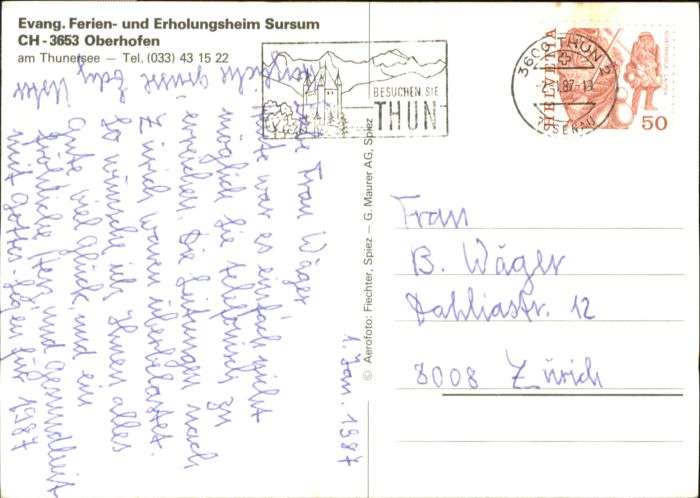 Evang. Ferien- und Erholungsheim Sursum
CH-3653 Oberhofen
am Thunersee — Tel. (033) 43 15 22
1. Jan. 1987
Liebe Frau Wäger,
Heute war es einfach nicht
möglich Sie telefonisch zu
erreichen. Die Leitungen nach
Zürich waren überbelastet.
So wünsche ich Ihnen alles
Gute viel Glück, und ein
fröhliches Herz und Gesundheit
mit Gottes Segen für 1987
Herzliche Grüsse
© Aerofoto: Fiechter, Spiez — G. Maurer AG, Spiez
BESUCHEN SIE
THUN
3600 THUN 2
HELVETIA
50
Frau
B. Wäger
Dahliastr. 12
8008 Zürich